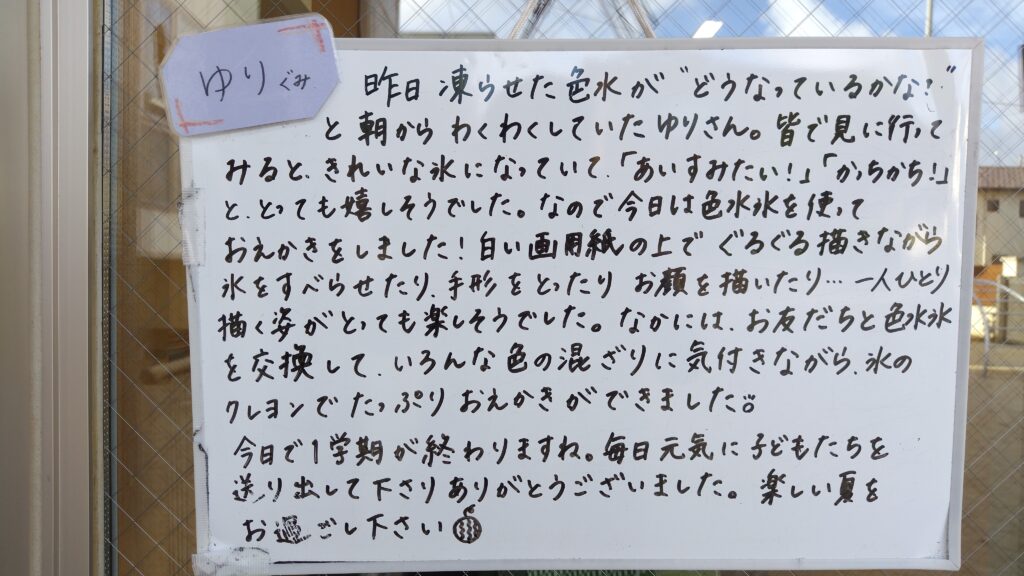 ゆりぐみ
昨日凍らせた色水が"どうなっているかな?"
と朝からわくわくしていたゆりさん。皆で見に行って
みると、きれいな氷になっていて、「あいすみたい!」「かっちかち!」
と、とっても嬉しそうでした。なので今日は色水氷を使って
おえかきをしました!白い画用紙の上でぐるぐる描きながら
氷をすべらせたり、手形をとったりお顔を描いたり…一人ひとり
描く姿がとっても楽しそうでした。なかには、お友だちと色水氷
を交換して、いろんな色の混ざりに気付きながら、氷の
クレヨンでたっぷりおえかきができました。
今日で1学期が終わりますね。毎日元気に子どもたちを
送り出して下さりありがとうございました。楽しい夏を
お過ごし下さい